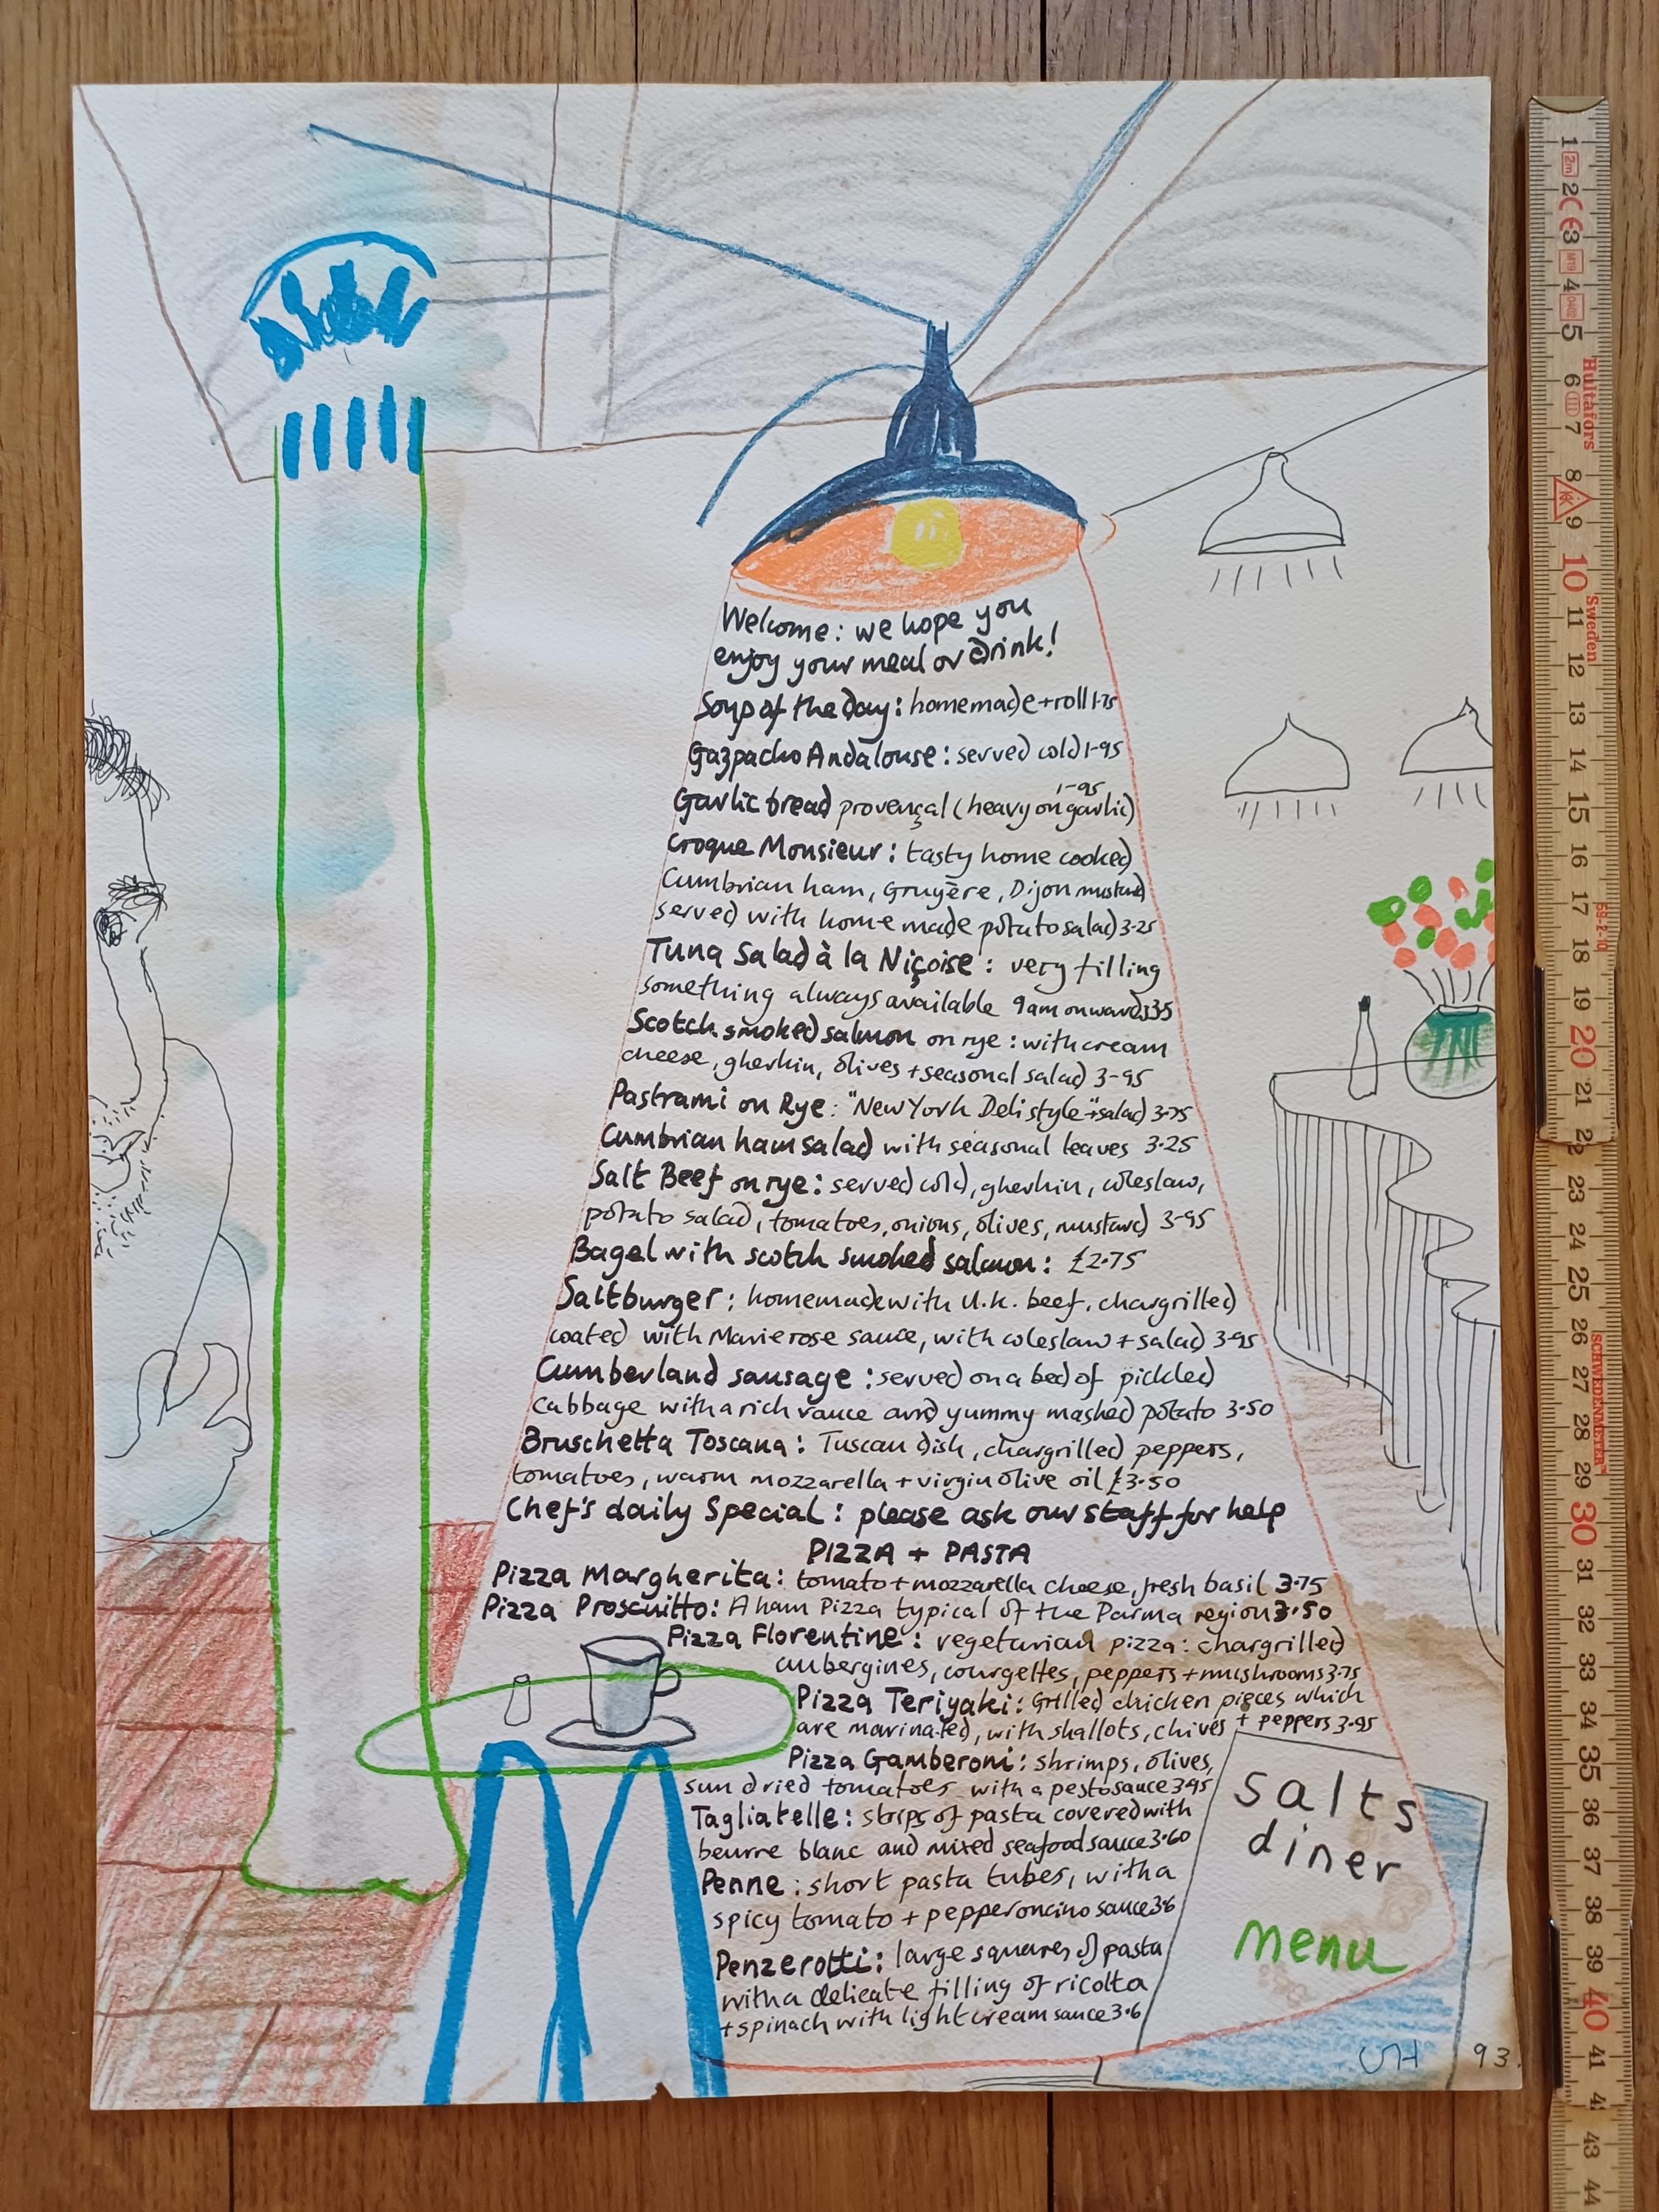 Welcome: we hope you
enjoy your meal or drink!
Soup of the day: homemade + roll 1-75
Gazpacho Andalouse: served cold 1-95
1-95
Garlic bread provençal (heavy on garlic)
Croque Monsieur: tasty home cooked
Cumbrian ham, Gruyère, Dijon mustard
served with home made potato salad 3-25
Tuna Salad à la Niçoise: very filling
something always available 9am onwards
Scotch smoked salmon on rye: with cream
cheese, gherkin, olives + seasonal salad 3-95
Pastrami on Rye: "New York Deli style" + salad 3-75
Cumbrian ham salad with seasonal leaves 3.25
Salt Beef on rye: served cold, gherkin, coleslaw,
potato salad, tomatoes, onions, olives, mustard 3-95
Bagel with scotch smoked salmon: £2.75
Saltburger: homemade with U.K. beef, chargrilled
coated with Marie rose sauce, with coleslaw + salad 3-95
Cumberland sausage: served on a bed of pickled
cabbage with a rich sauce and yummy mashed potato 3.50
Bruschetta Toscana: Tuscan dish, chargrilled peppers,
tomatoes, warm mozzarella + virgin olive oil £3.50
Chef's daily Special: please ask our staff for help
PIZZA + PASTA
Pizza Margherita: tomato + mozzarella cheese, fresh basil 3.75
Pizza Proscuitto: A ham Pizza typical of the Parma region 3.50
Pizza Florentine: vegetarian pizza: chargrilled
aubergines, courgettes, peppers + mushrooms 3.75
Pizza Teriyaki: Grilled chicken pieces which
are marinated, with shallots, chives + peppers 3.95
Pizza Gamberoni: shrimps, olives,
sun dried tomatoes with a pesto sauce 3.95
Tagliatelle: strips of pasta covered with
beurre blanc and mixed seafood sauce 3.60
Penne: short pasta tubes, with a
spicy tomato + pepperoncino sauce 3.6
Penzerotti: large squares of pasta
with a delicate filling of ricotta
+ spinach with light cream sauce 3.6
salts
diner
menu
DH 93.
1 2 3 4 5 6 7 8 9 10 11 12 13 14 15 16 17 18 19 20 21 2 23 24 25 26 27 28 29 30 31 32 33 34 35 36 37 38 39 40 41 4 43 44
2m CE M19 0402
Hultafors
Sweden
59-2-10
SCHWEDENMETER